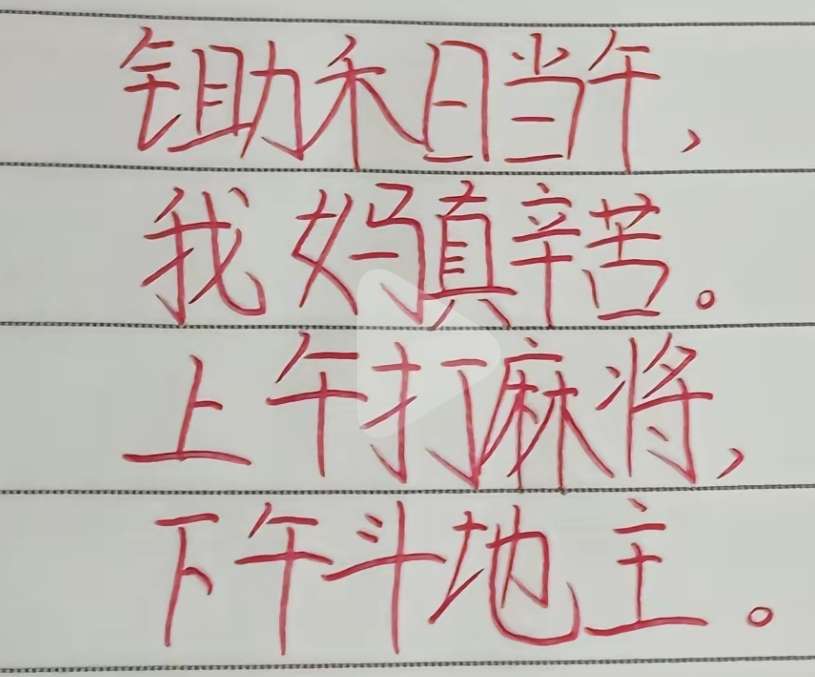 锄禾日当午,
我妈真辛苦。
上午打麻将,
下午斗地主。